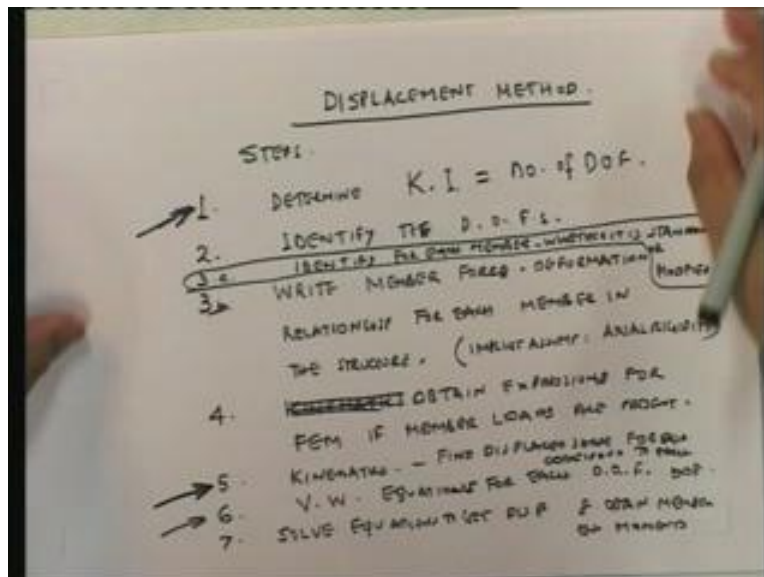 DISPLACEMENT METHOD.
STEPS.
1. DETERMINE K.I = no. of DOF.
2. IDENTIFY THE D.O.F.S.
IDENTIFY FOR EACH MEMBER. WHETHER IT IS STANDARD OR
MODIFIED
3. WRITE MEMBER FORCE. DEFORMATION
RELATIONSHIP FOR EACH MEMBER IN
THE STRUCTURE. (IMPLICIT ASSUMP: AXIAL RIGIDITY)
4. OBTAIN EXPRESSIONS FOR
FEM IF MEMBER LOADS ARE PRESENT.
5. KINEMATICS. - FIND DISPLACED SHAPE FOR
CORRESPONDING TO EACH
6. V.W. EQUATIONS FOR EACH D.O.F. DOF.
7. SOLVE EQUATIONS GET & OBTAIN MEMBER
END MOMENTS